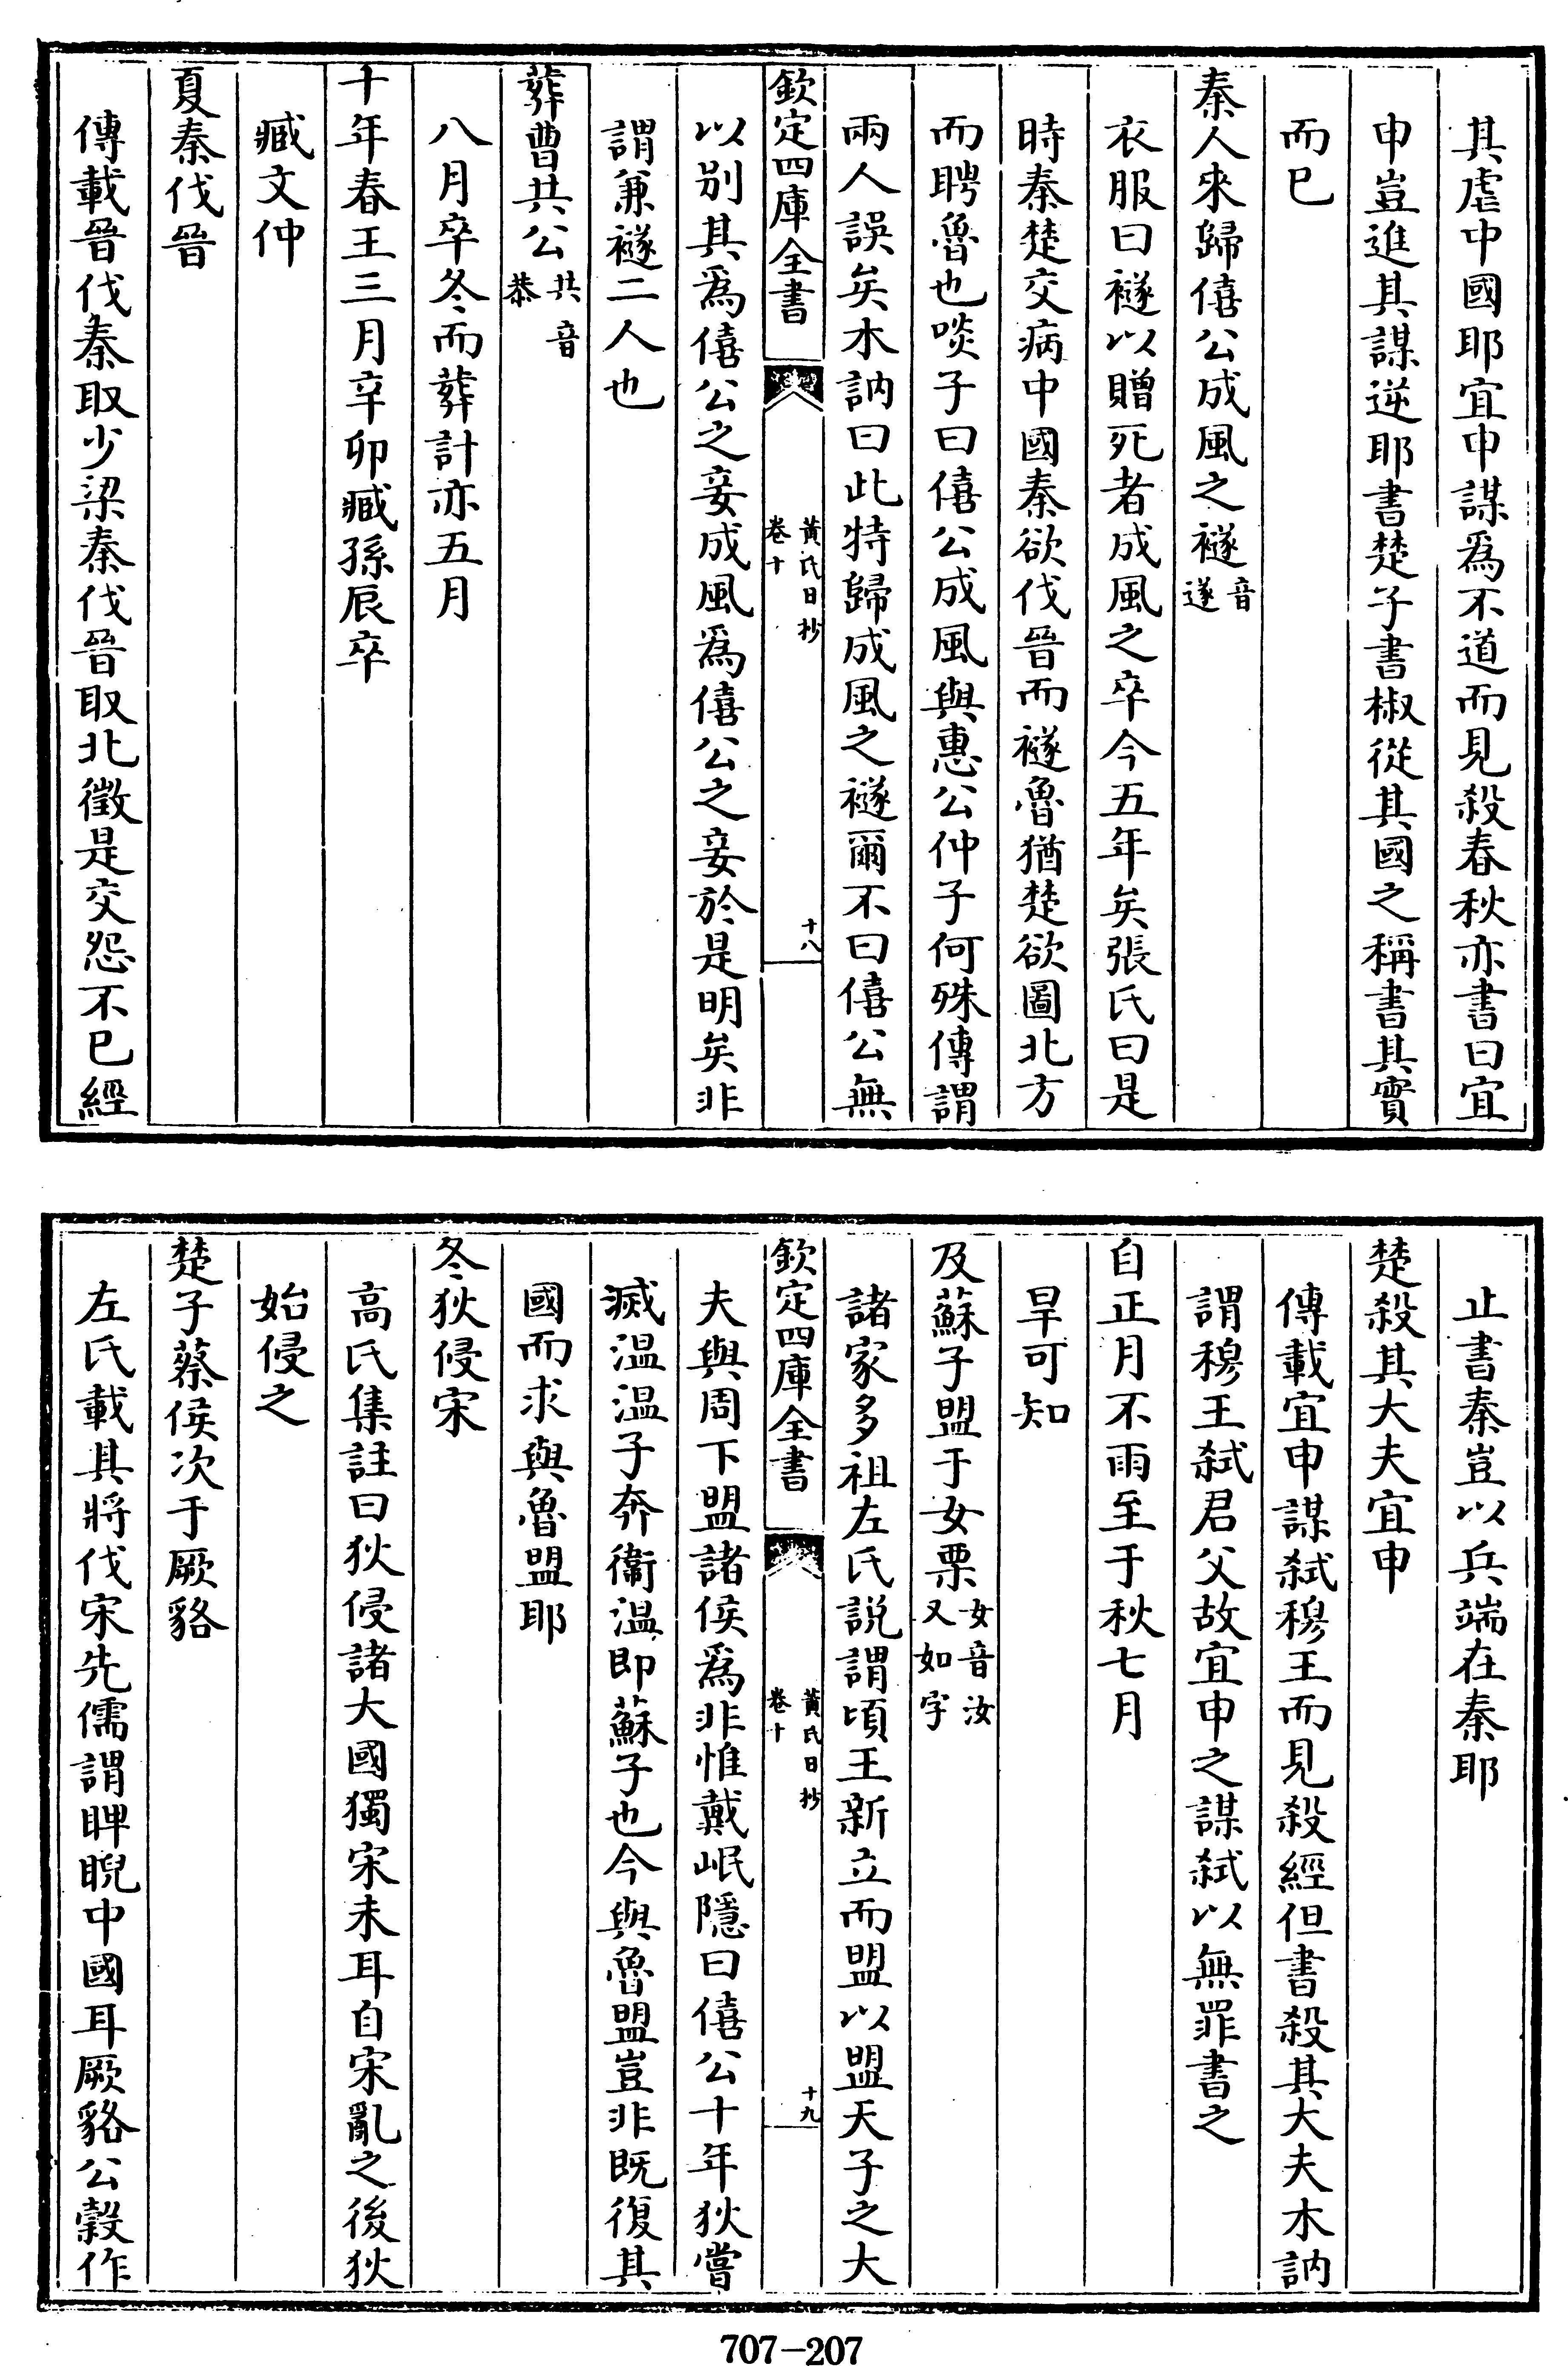 其虐中國耶宜申謀為不道而見殺春秋亦書曰宜
申豈進其謀逆耶書楚子書椒從其國之稱書其實
而已
秦人來歸僖公成風之襚音遂
衣服曰襚以贈死者成風之卒今五年矣張氏曰是
時秦楚交病中國秦欲伐晉而襚魯猶楚欲圖北方
而聘魯也啖子曰僖公成風與惠公仲子何殊傳謂
兩人誤矣木訥曰此特歸成風之襚爾不曰僖公無
欽定四庫全書 黃氏日抄 卷十 十八
以別其為僖公之妾成風為僖公之妾於是明矣非
謂兼襚二人也
葬曹共公共音恭
八月卒冬而葬計亦五月
十年春王三月辛卯臧孫辰卒
臧文仲
夏秦伐晉
傳載晉伐秦取少梁秦伐晉取北徵是交怨不已經
止書秦豈以兵端在秦耶
楚殺其大夫宜申
傳載宜申謀弒穆王而見殺經但書殺其大夫木訥
謂穆王弒君父故宜申之謀弒以無罪書之
自正月不雨至于秋七月
旱可知
及蘇子盟于女栗女音汝又如字
諸家多祖左氏説謂頃王新立而盟以盟天子之大
欽定四庫全書 黃氏日抄 卷十 十九
夫與周下盟諸侯為非惟戴岷隱曰僖公十年狄嘗
滅温温子奔衞温即蘇子也今與魯盟豈非既復其
國而求與魯盟耶
冬狄侵宋
高氏集註曰狄侵諸大國獨宋未耳自宋亂之後狄
始侵之
楚子蔡侯次于厥貉
左氏載其將伐宋先儒謂睥睨中國耳厥貉公穀作
707-207